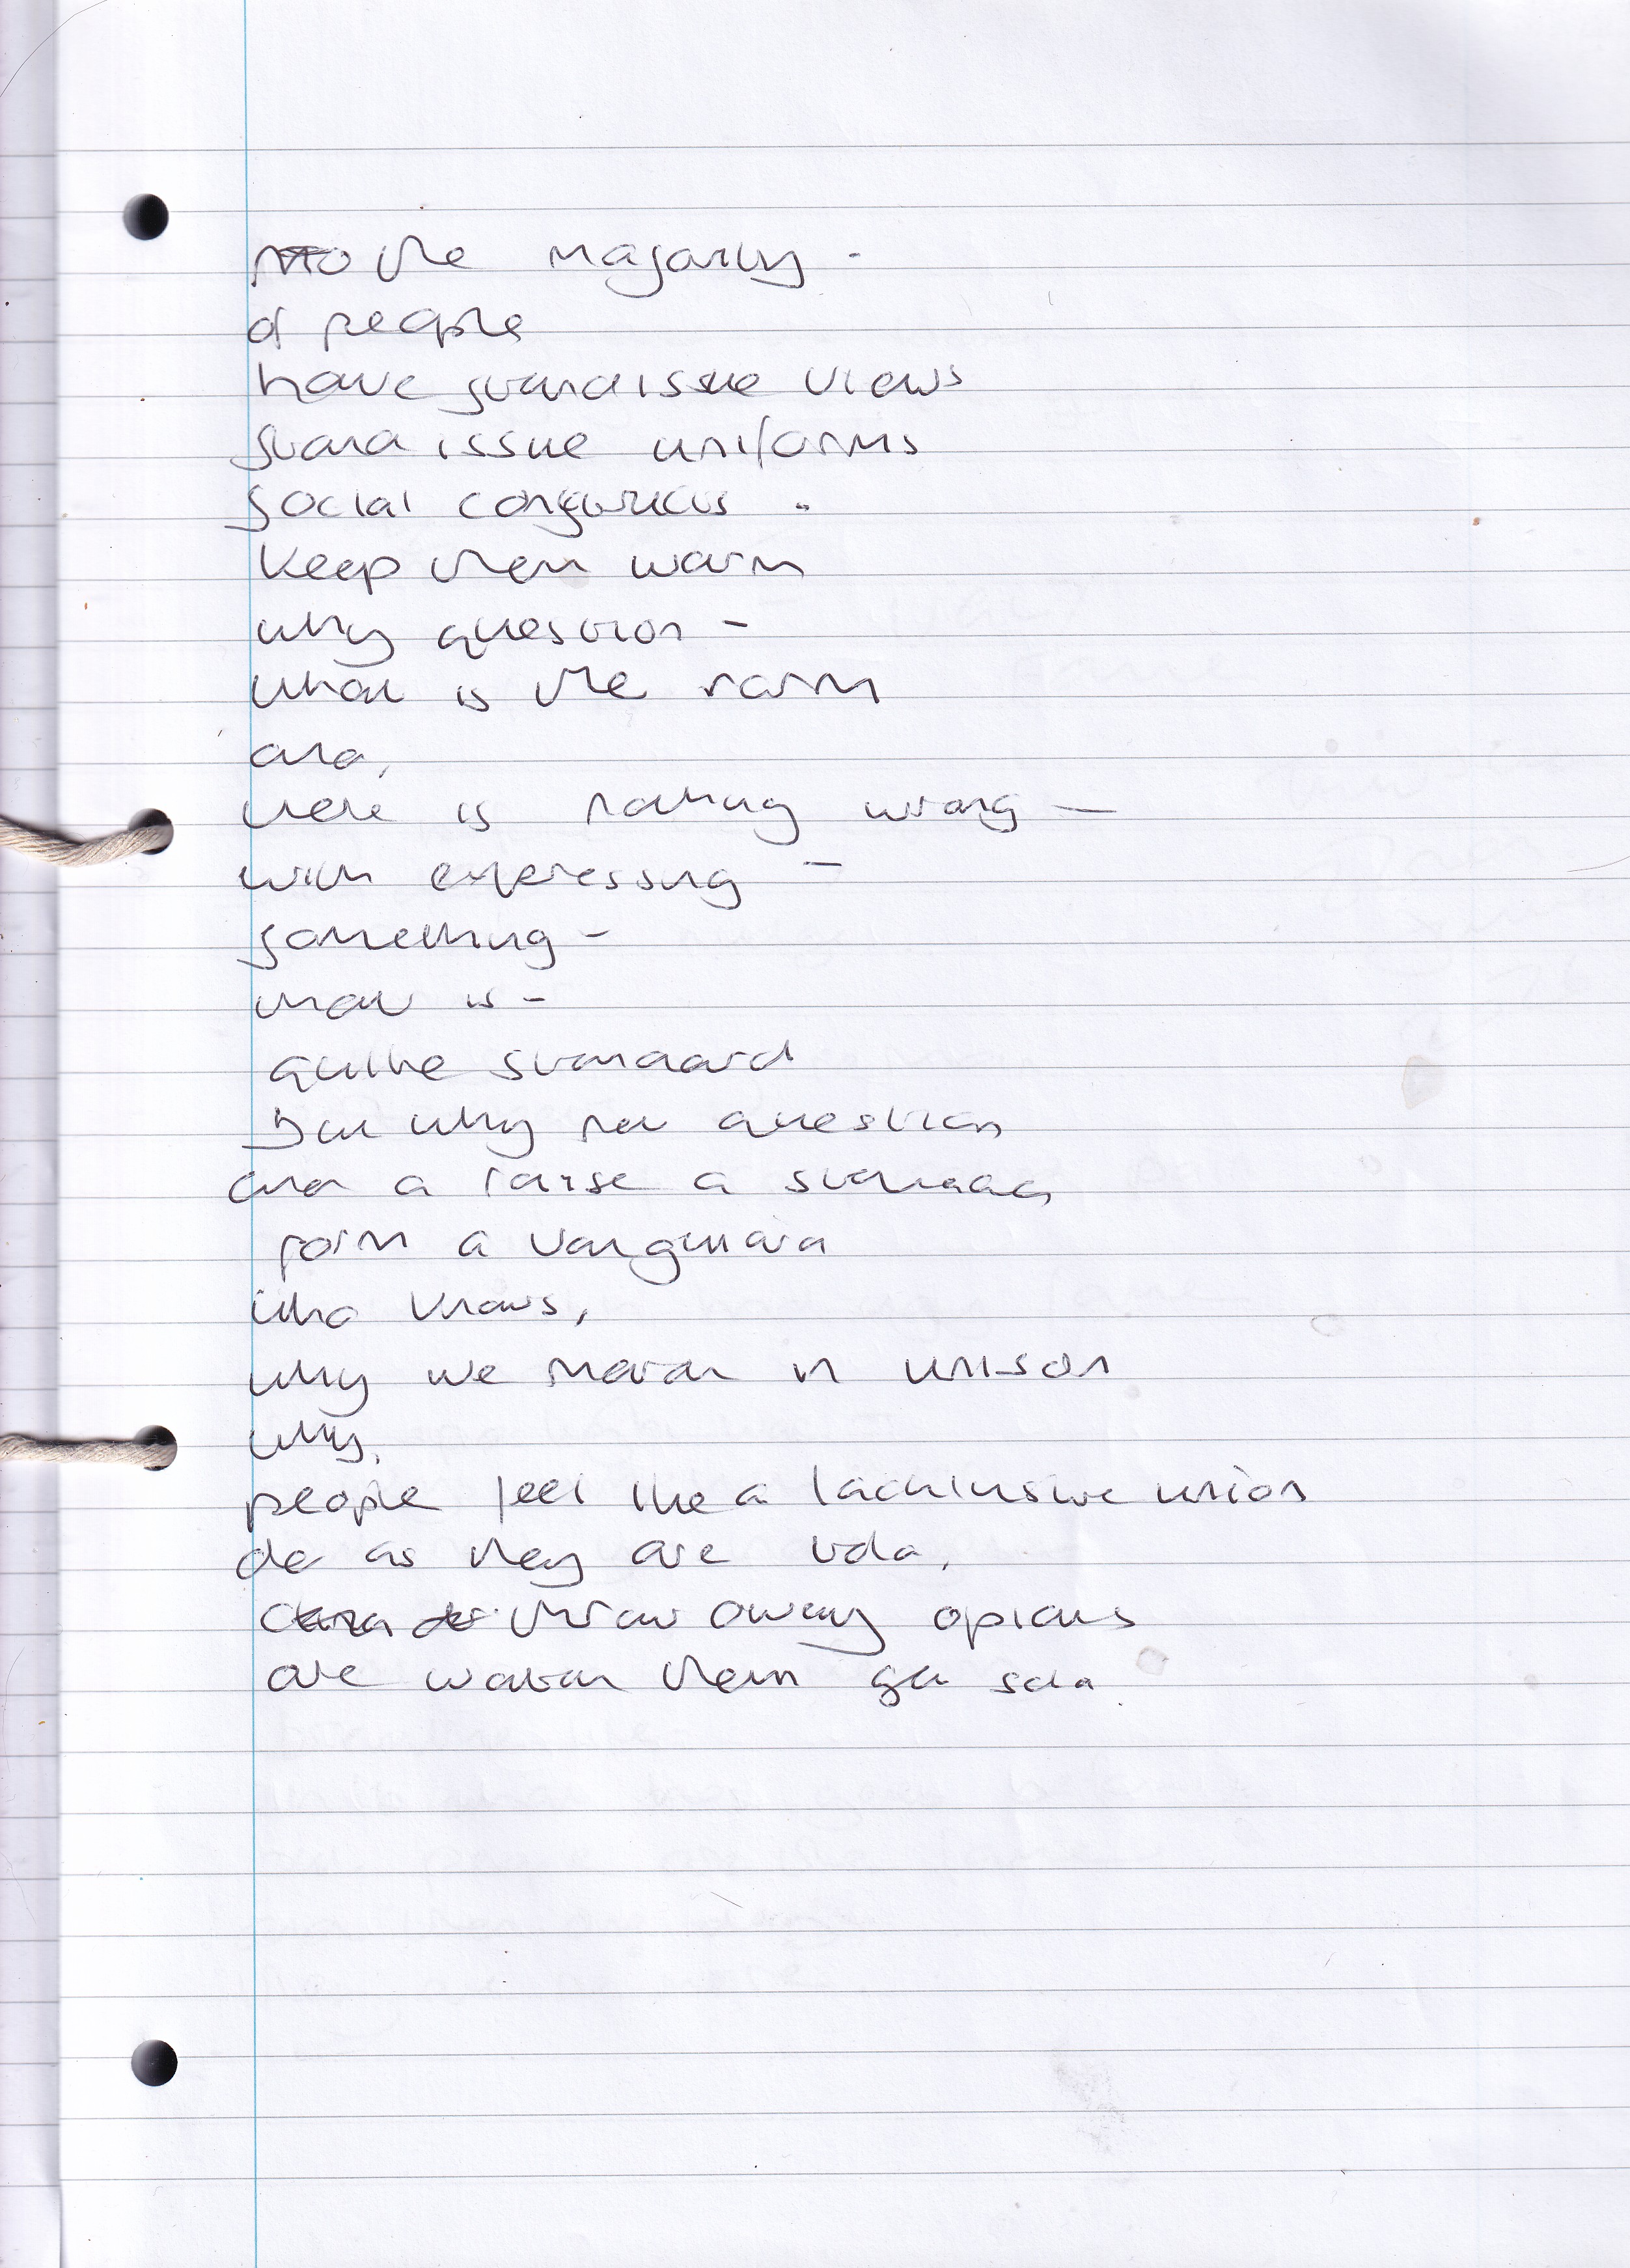 the majority -
of people
have standissue views
stand issue uniforms
social
keep them warm
why question -
what is the norm
and,
there is nothing wrong -
with expressing -
something -
that is -
quite standard
But why not question
and a raise a standard
form a vanguard
who knows,
why we march in unison
why,
people feel like a union
do as they are told,
throw away opions
are watch them get sold.